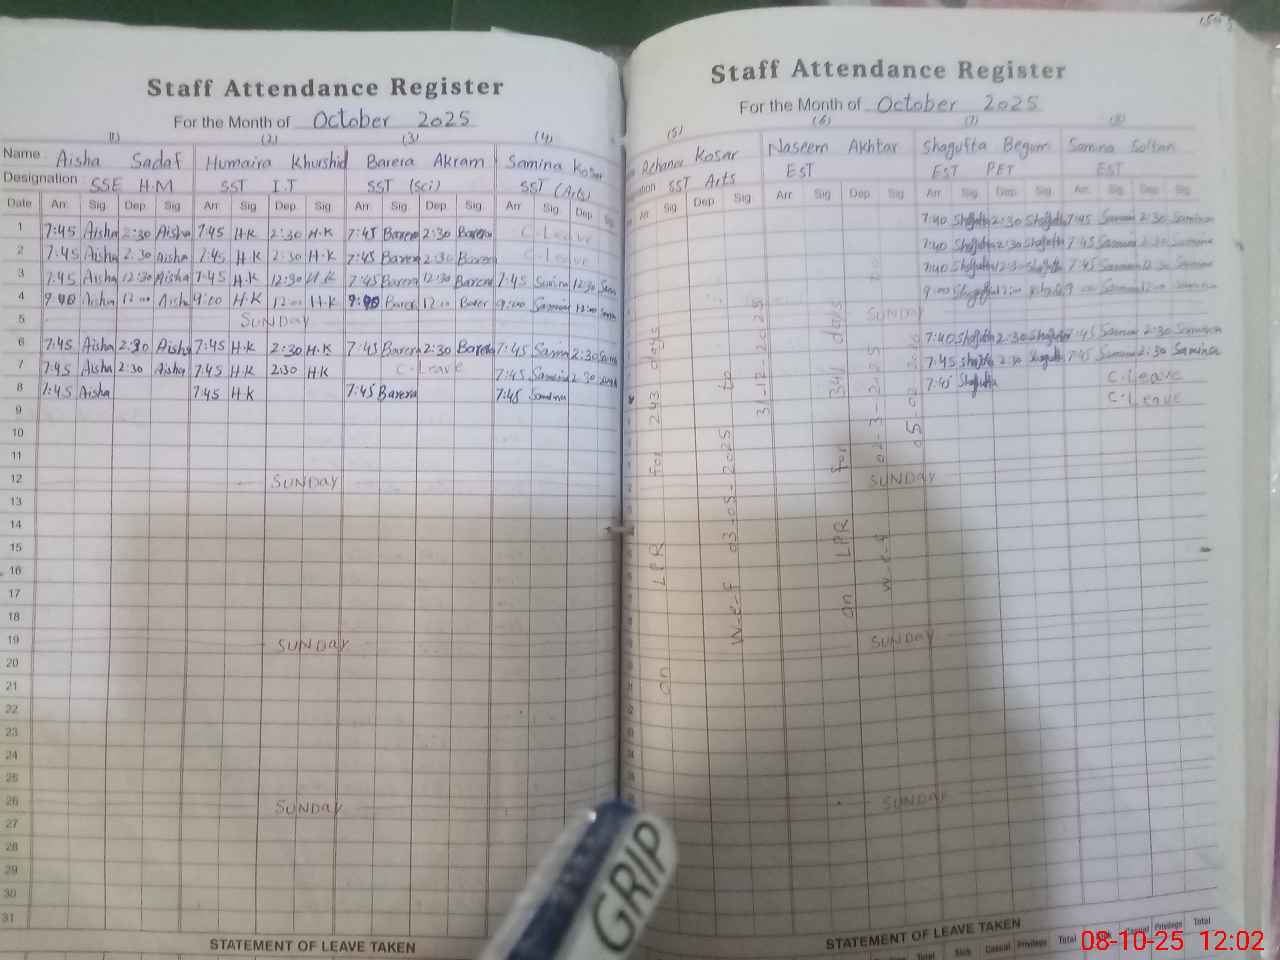 Staff Attendance Register
For the Month of October 2025
(1) (2) (3) (4)
Name Aisha Sadaf Humaira Khurshid Barera Akram Samina Kosar
Designation SSE H.M SST I.T SST (Sci) SST (Arts)
Date Arr Sig Dep Sig Arr Sig Dep Sig Arr Sig Dep Sig Arr Sig Dep Sig
1 7:45 Aisha 2:30 Aisha 7:45 H.K 2:30 H.K 7:45 Barera 2:30 Barera C-Leave
2 7:45 Aisha 2:30 Aisha 7:45 H.K 2:30 H.K 7:45 Barera 2:30 Barera C-Leave
3 7:45 Aisha 12:30 Aisha 7:45 H.K 12:30 H.K 7:45 Barera 12:30 Barera 7:45 Samina 12:30
4 9:00 Aisha 12:00 Aisha 9:00 H.K 12:00 H.K 9:00 Barer 12:00 Barer 9:00 Samina 12:00
5 SUNDAY
6 7:45 Aisha 2:30 Aisha 7:45 H.K 2:30 H.K 7:45 Barera 2:30 Barera 7:45 Samina 2:30
7 7:45 Aisha 2:30 Aisha 7:45 H.K 2:30 HK C-Leave 7:45 Samina 2:30
8 7:45 Aisha 7:45 H.K 7:45 Barera 7:45 Samina
9
10
11
12 SUNDAY
13
14
15
16
17
18
19 SUNDAY
20
21
22
23
24
25
26 SUNDAY
27
28
29
30
31
STATEMENT OF LEAVE TAKEN
Staff Attendance Register
For the Month of October 2025
(5) (6) (7) (8)
Kosar Naseem Akhtar Shagufta Begum Samina Soltan
SST Arts EST EST PET EST
Arr Sig Dep Sig Arr Sig Dep Sig Arr Sig Dep Sig Arr Sig Dep Sig
7:40 Shagufta 2:30 Shagufta 7:45 Samina 2:30 Samina
7:40 Shagufta 2:30 Shagufta 7:45 Samina 2:30 Samina
7:40 Shagufta 12:30 Shagufta 7:45 Samina 12:30 Samina
9:00 Shagufta 12:00 9:00 Samina 12:00 Samina
SUNDAY
7:40 Shagufta 2:30 Shagufta 7:45 Samina 2:30 Samina
7:45 Shagufta 2:30 Shagufta 7:45 Samina 2:30 Samina
7:45 Shagufta C-Leave
C-Leave
on LPR for 243 days
w.e.f 03-05-2025 to
31-12-2025
on LPR for 341 days
w.e.f
SUNDAY
SUNDAY
SUNDAY
STATEMENT OF LEAVE TAKEN
Total Sick Casual Privilege Total Sick Casual Privilege Total
GRIP
08-10-25 12:02